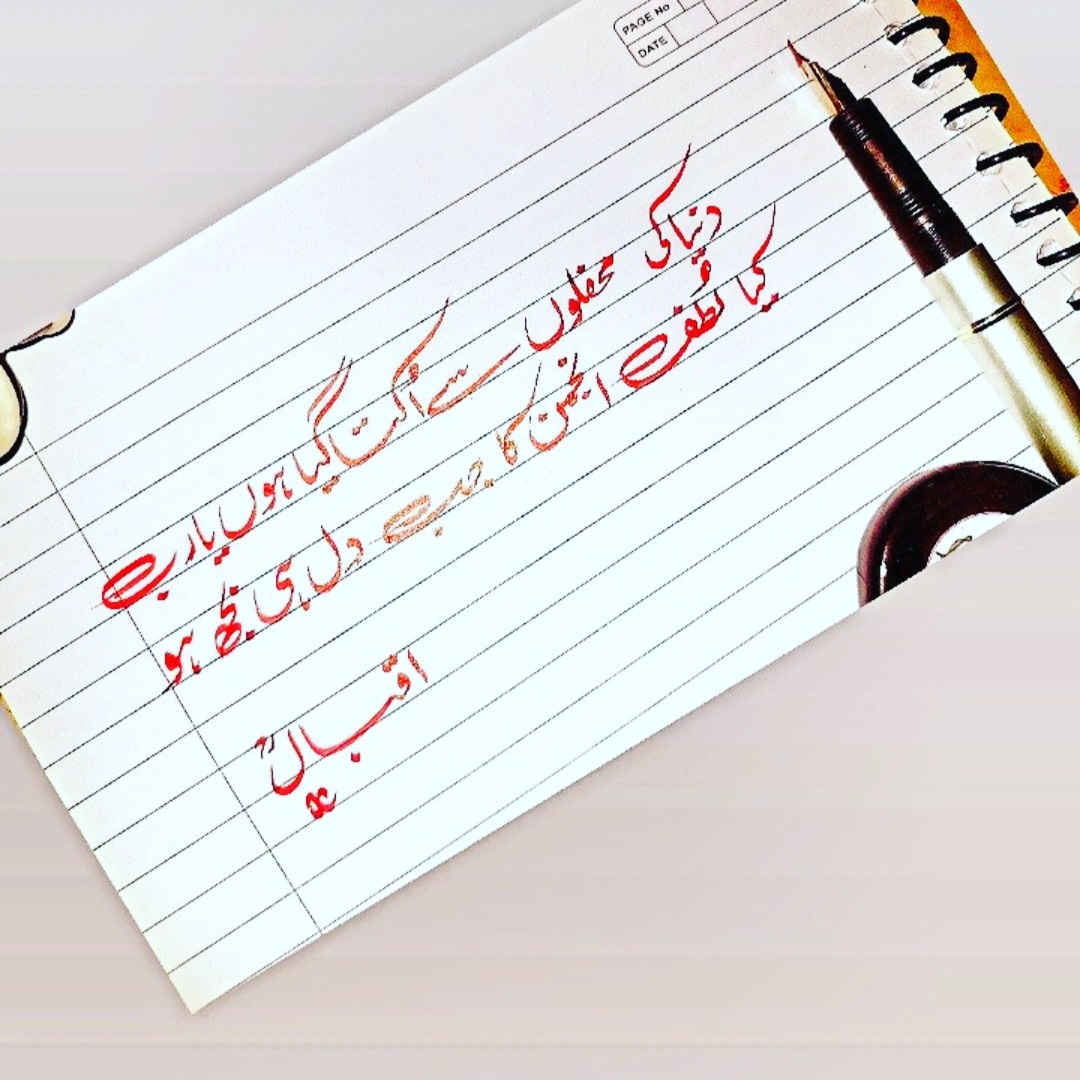 PAGE No
DATE
دنیا کی محفلوں سے اُکتا گیا ہوں یارب
کیا لُطف انجمن کا جب دل ہی بُجھ ہو
اقبالؒ